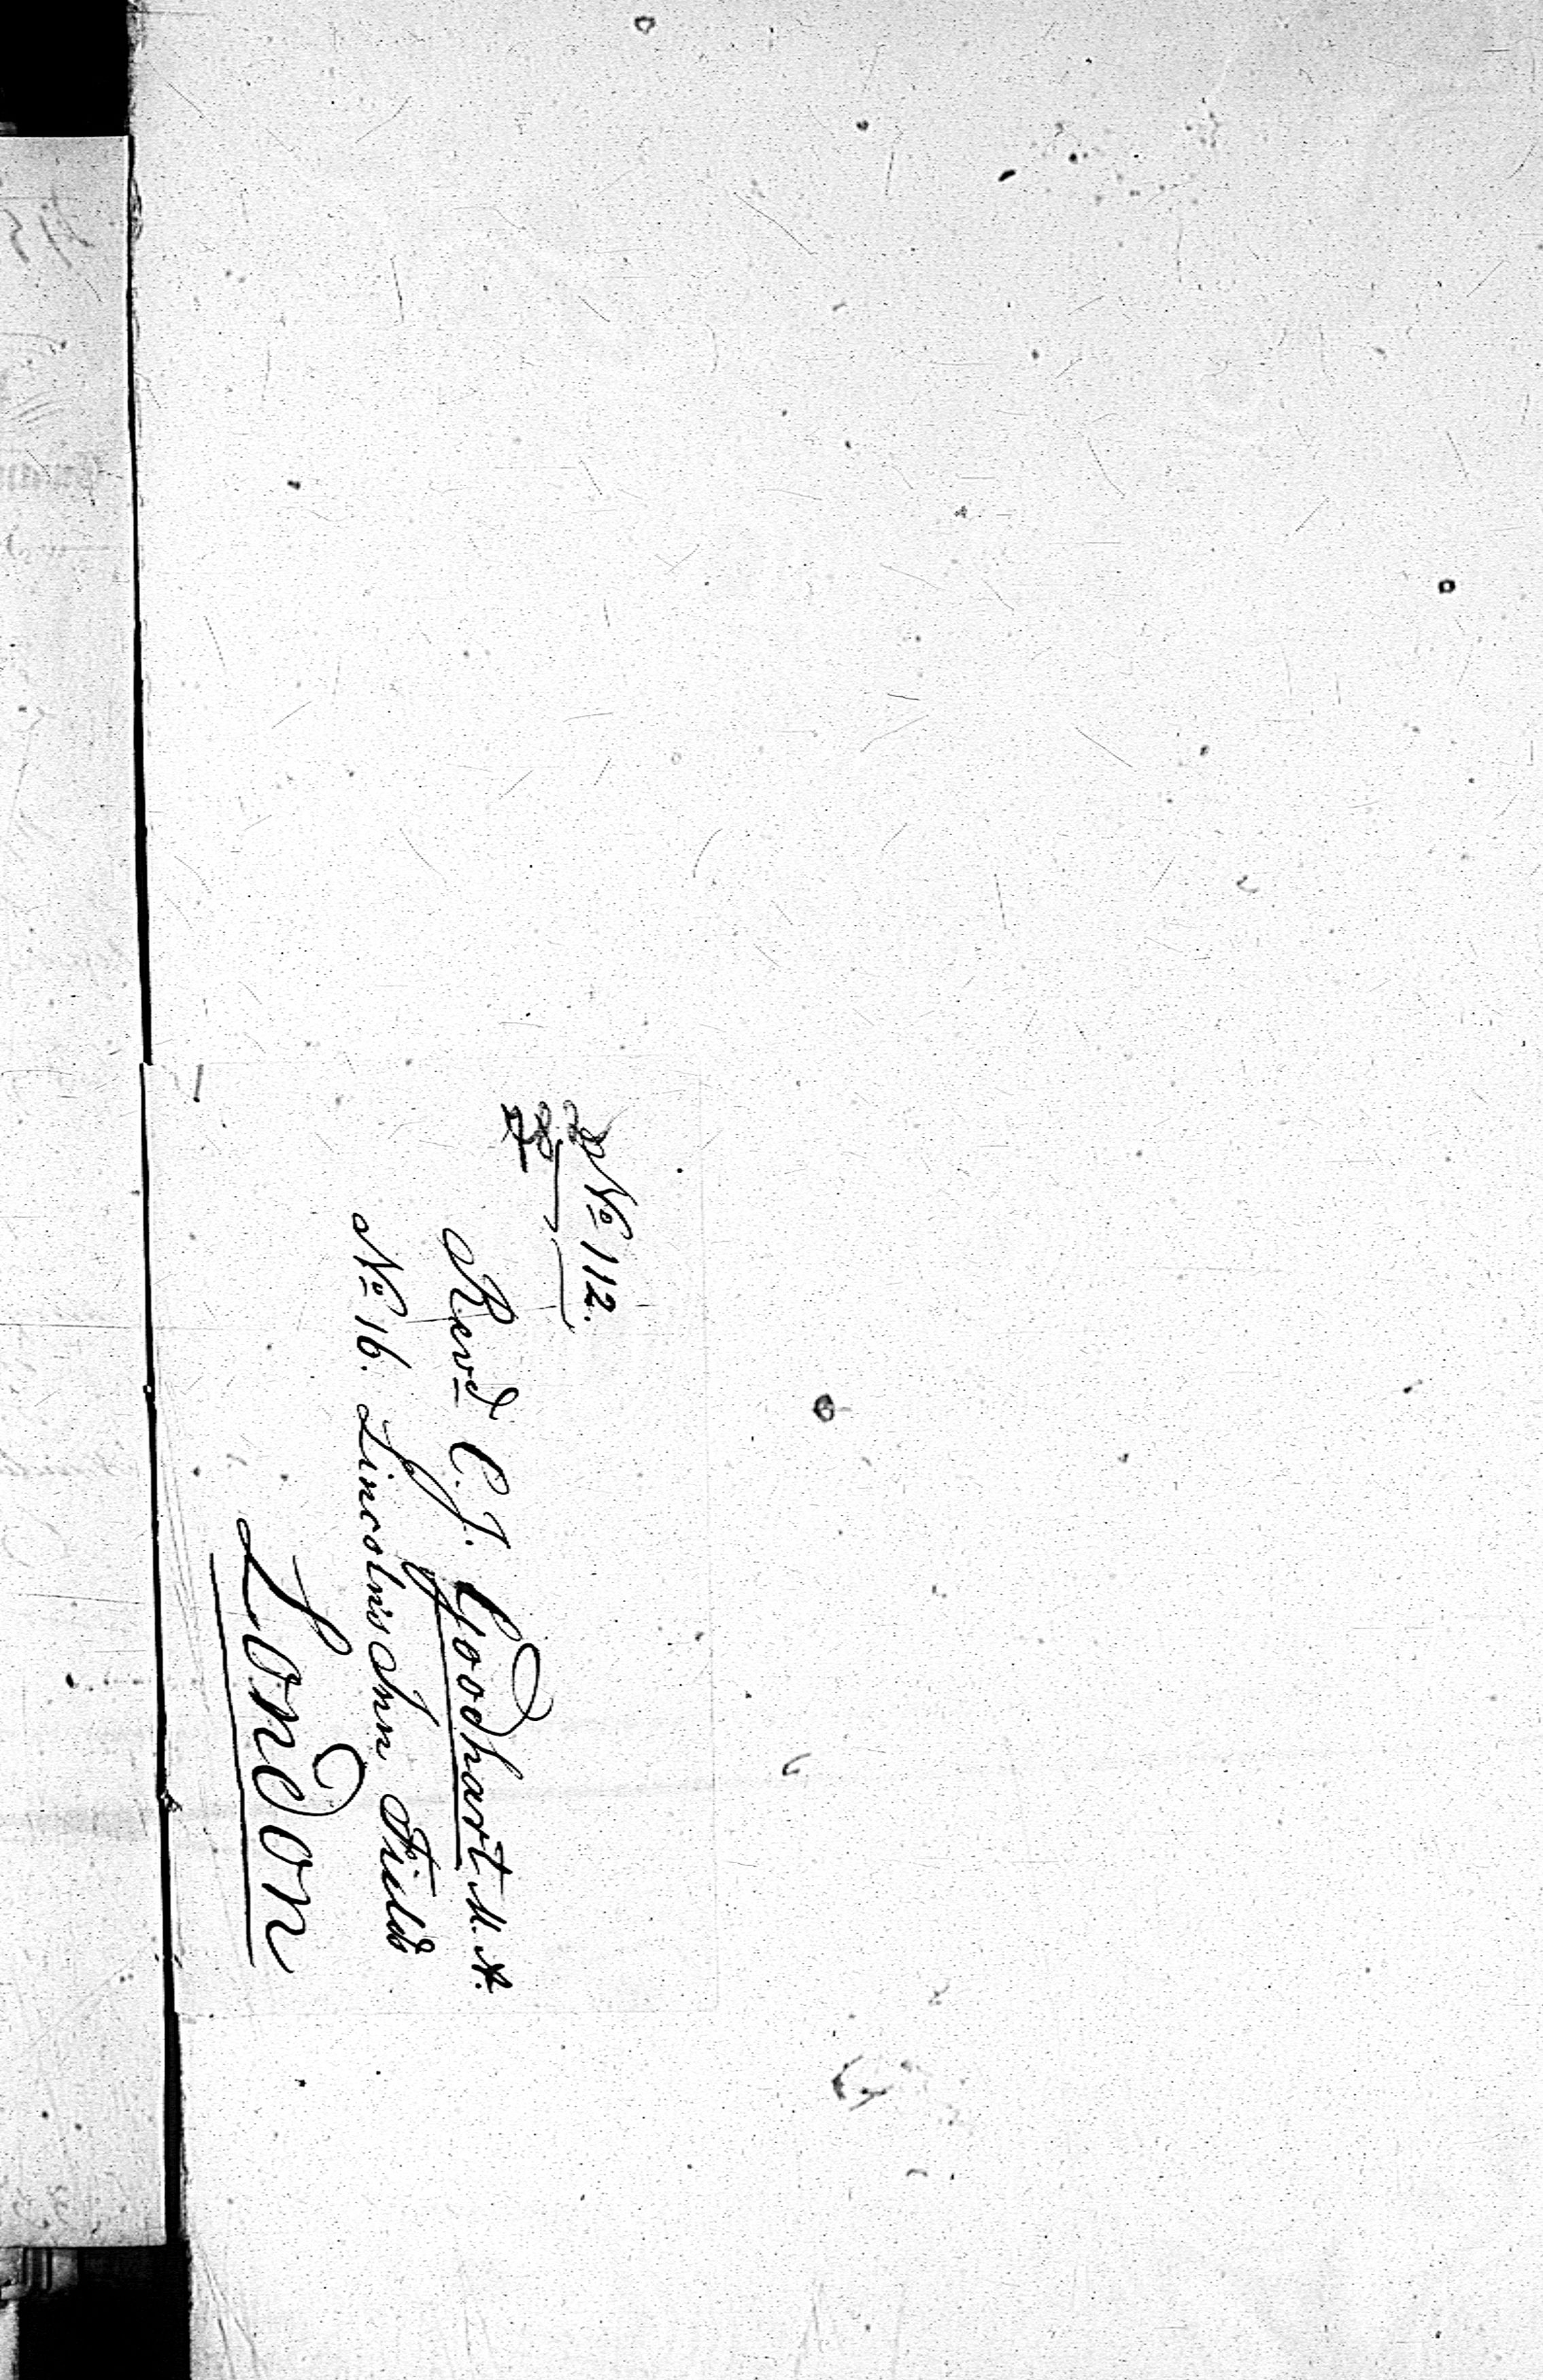 No 112.
Revd C. J. Goodhart M. A.
No 16. Lincoln's Inn Fields
London